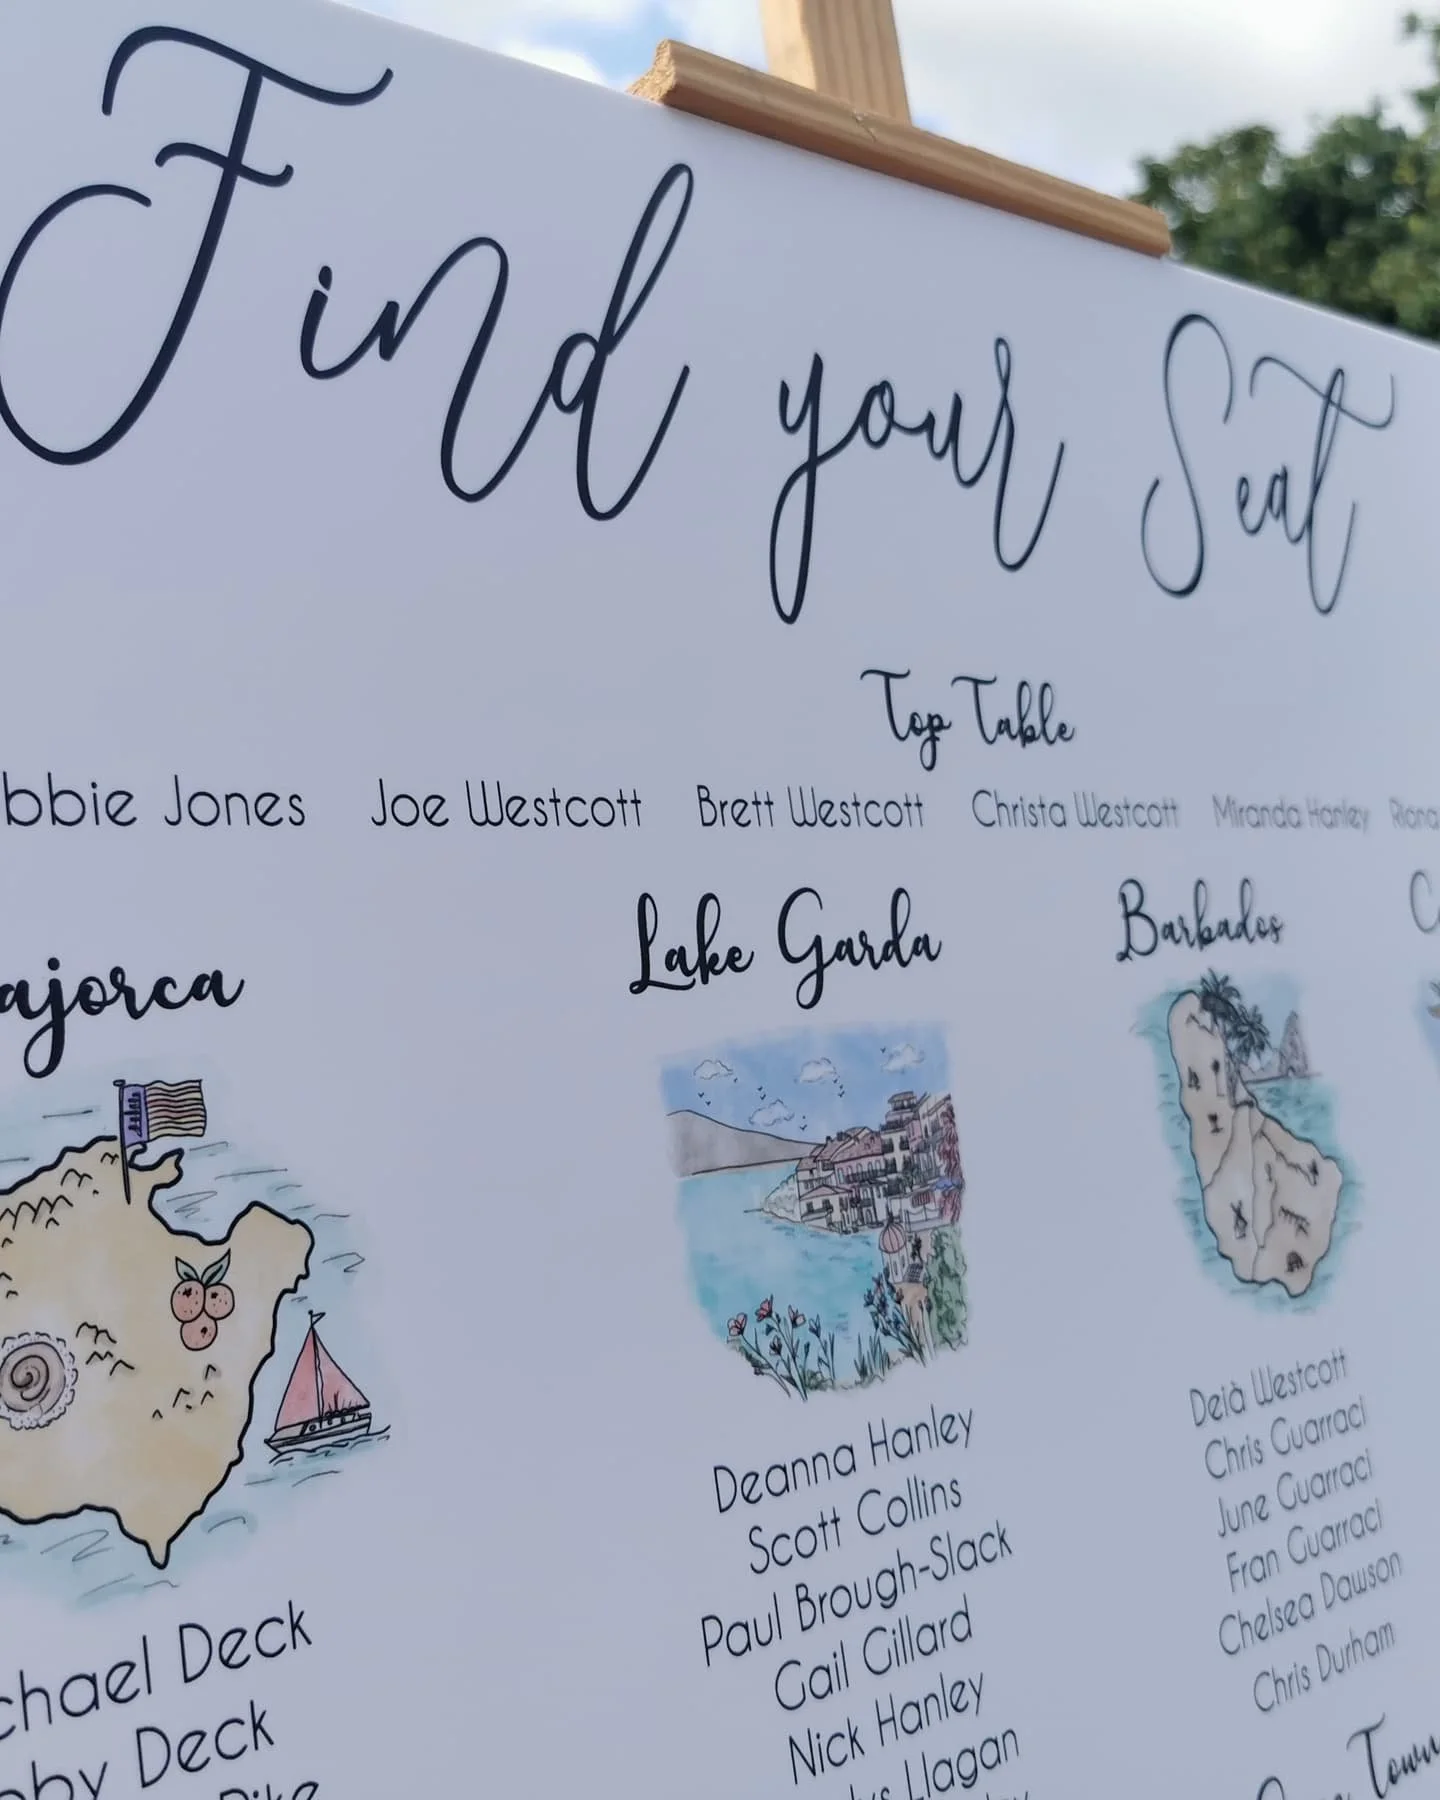 Find your Seat
Top Table
bbie Jones Joe Westcott Brett Westcott Christa Westcott Miranda Hanley Riana
ajorca
chael Deck
by Deck
Lake Garda
Deanna Hanley
Scott Collins
Paul Brough-Slack
Gail Gillard
Nick Hanley
Llagan
Barbados
Deià Westcott
Chris Guarraci
June Guarraci
Fran Guarraci
Chelsea Dawson
Chris Durham
Town